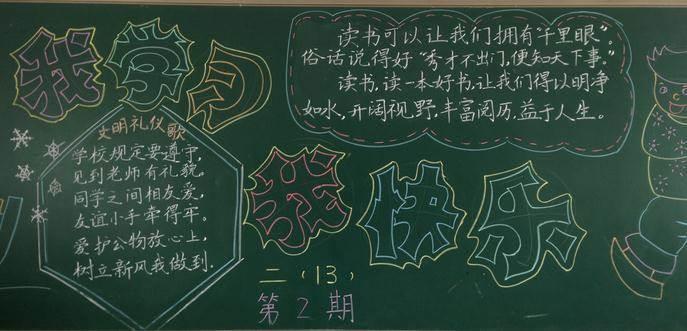 我学习
读书可以让我们拥有“千里眼”。
俗话说得好“秀才不出门，便知天下事。”
读书，读一本好书，让我们得以明净
如水，开阔视野，丰富阅历，益于人生。
文明礼仪歌
学校规定要遵守，
见到老师有礼貌。
同学之间相友爱，
友谊小手牵得牢。
爱护公物放心上，
树立新风我做到.
我快乐
二（13）
第2期